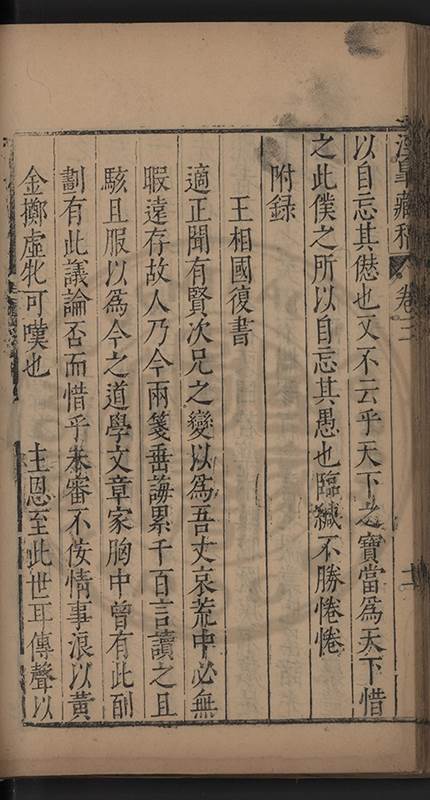 以自忘其僿也又不云乎天下之寶當爲天下惜
之此僕之所以自忘其愚也臨緘不勝惓惓
附録
王相國復書
適正聞有賢次兄之變以爲吾丈哀荒中必無
暇遠存故人乃今兩箋垂誨累千百言讀之且
駭且服以爲今之道學文章家胸中曾有此剖
劃有此議論否而惜乎未審不佞情事浪以黄
金擲虛牝可嘆也　主恩至此世耳傳聲以
藏稿
卷二